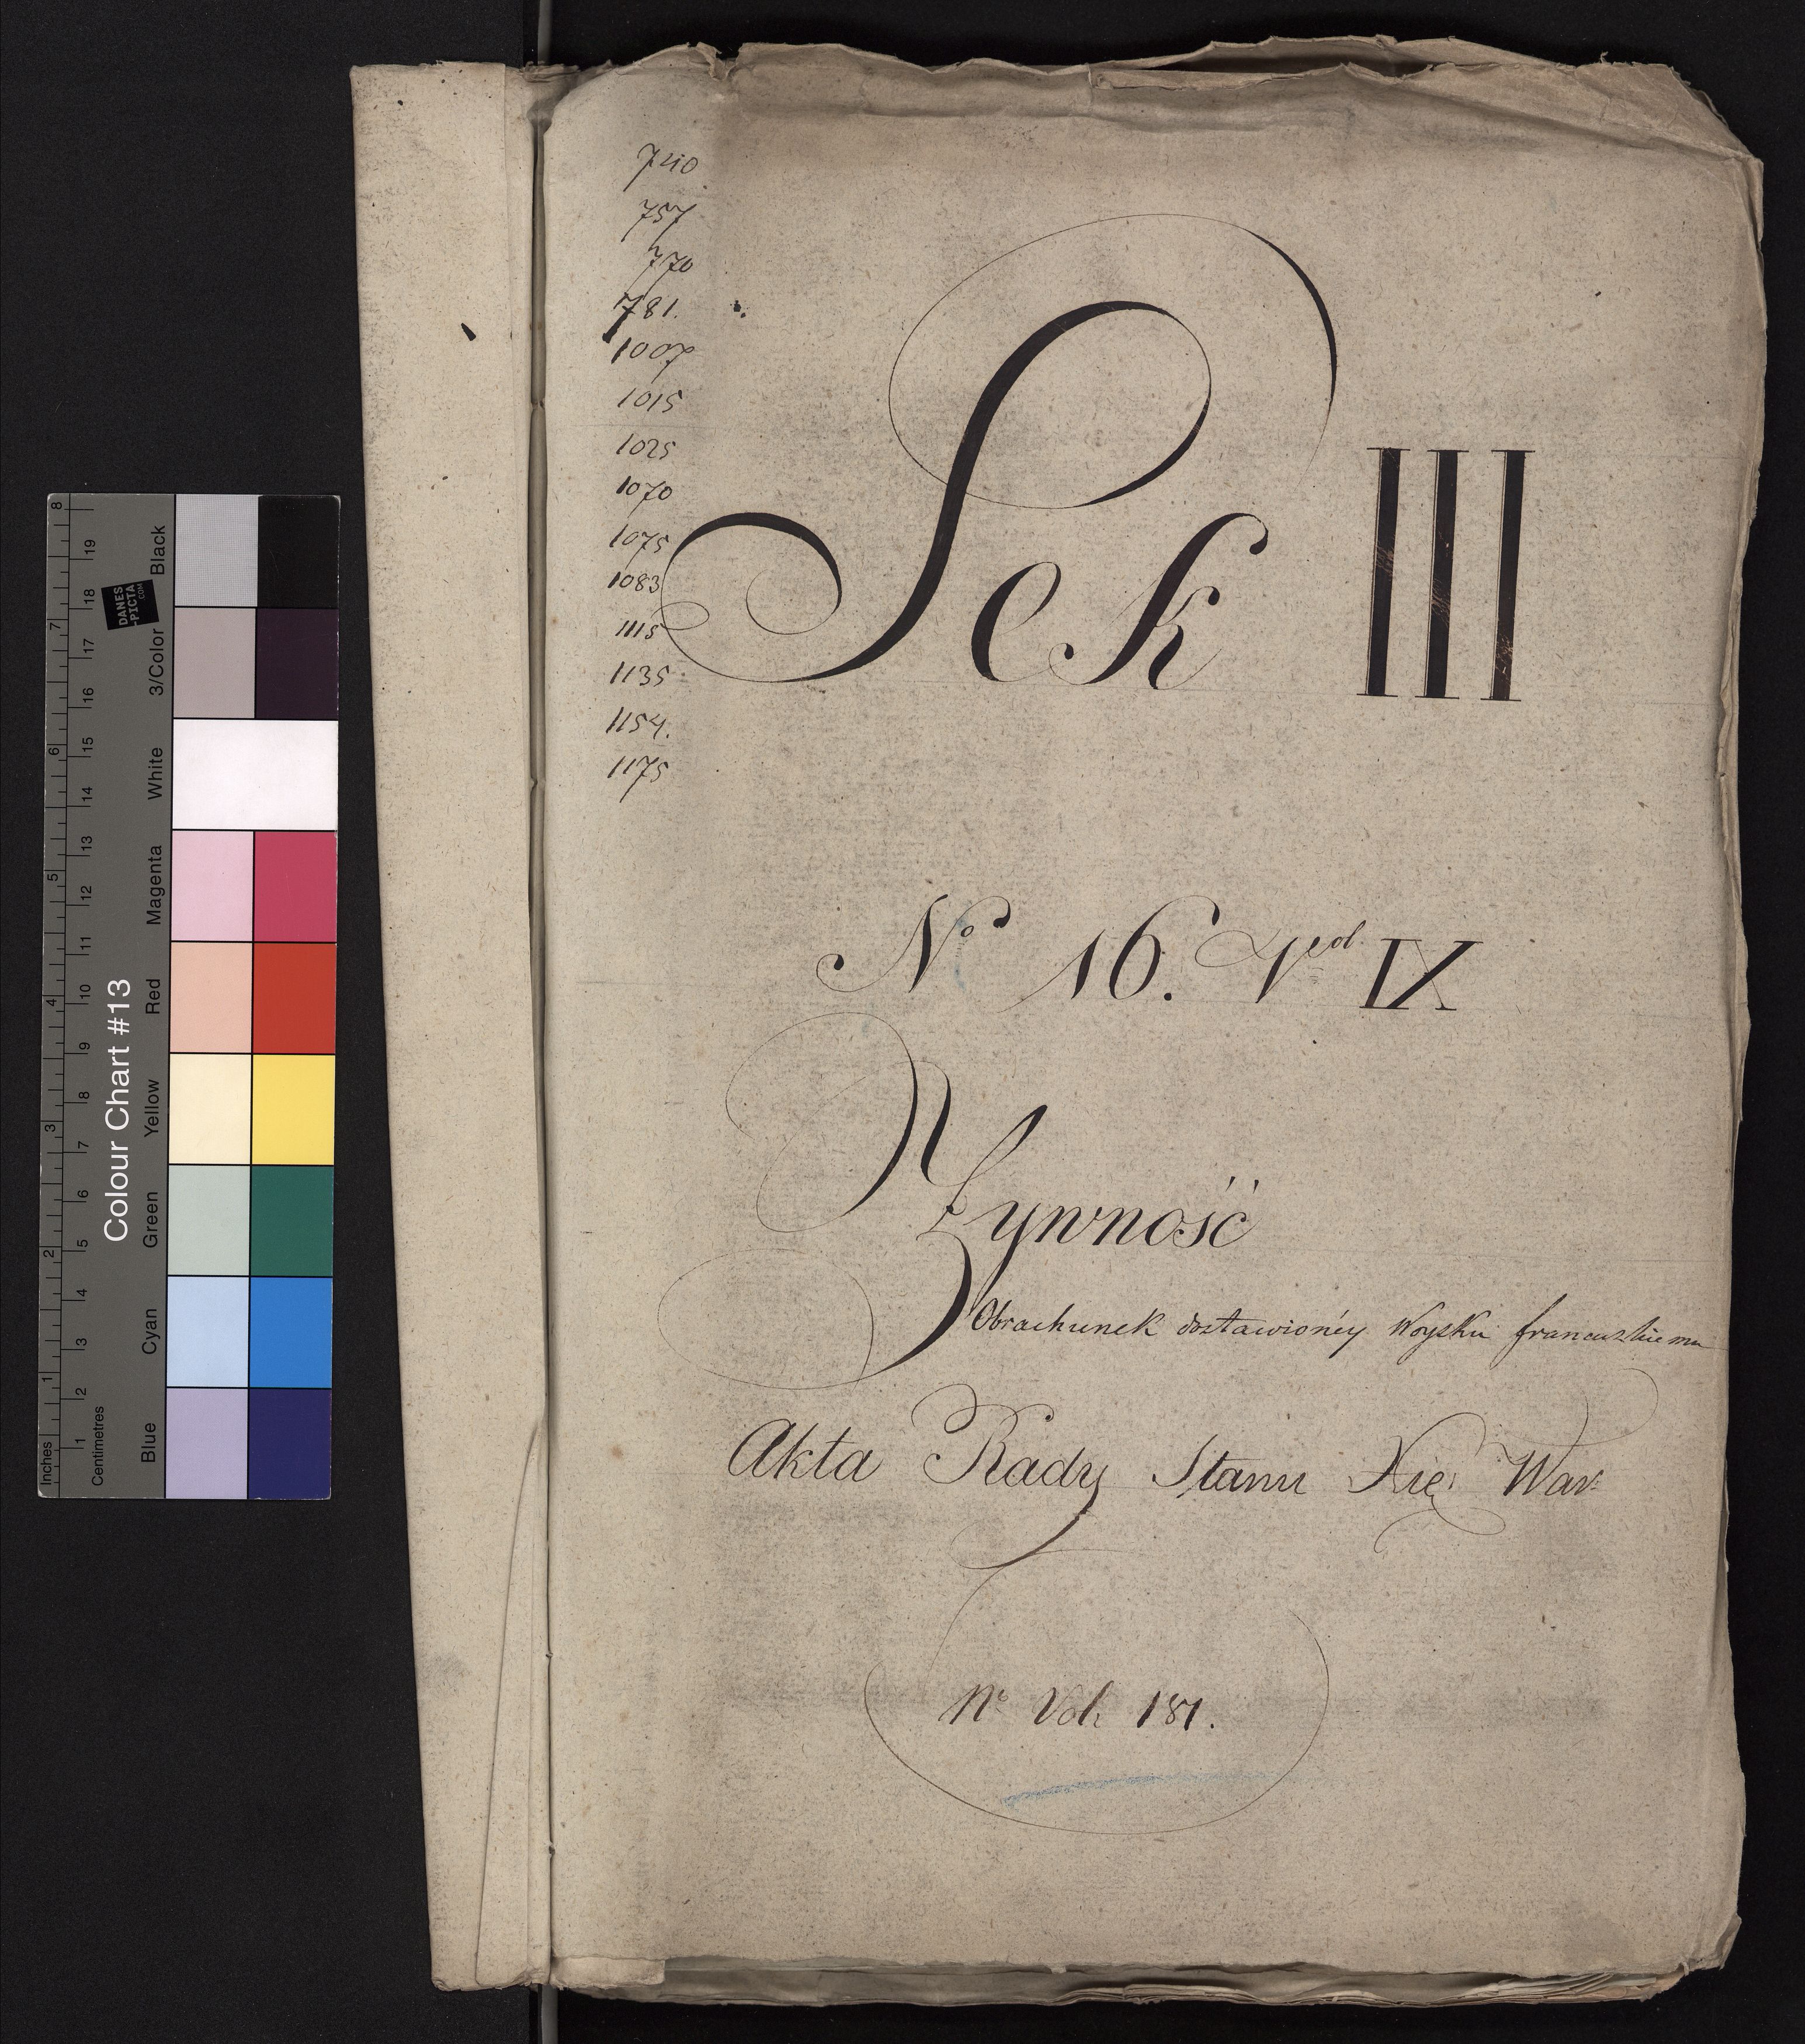 740
757
770
781.
1007
1015
1025
1070
1075
1083
1115
1135
1154.
1175
Sek III
No 16. Vol IX
Zywność
Obrachunek dostawionéy Woysku francuzkiemu
Akta Rady Stanu Xię: War:
No Vol: 181.
Colour Chart #13
Blue Cyan Green Yellow Red Magenta White 3/Color Black
Inches 1 2 3 4 5 6 7 8
Centimetres 1 2 3 4 5 6 7 8 9 10 11 12 13 14 15 16 17 18 19
DANES
-PICTA
.COM